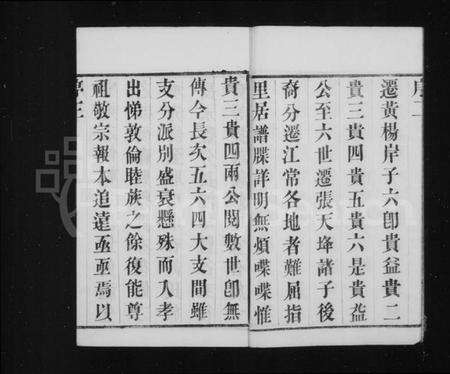 遷黃楊岸子六卽貴益貴二
貴三貴四貴五貴六是貴益
公至六世遷張天埄諸子後
裔分遷江常各地者難屈指
里居譜牒詳明無煩喋喋惟
貴三貴四兩公閱數世卽無
傳今長次五六四大支間雖
支分派別盛衰懸殊而入孝
出悌敦倫睦族之餘復能尊
祖敬宗報本追遠亟亟焉以